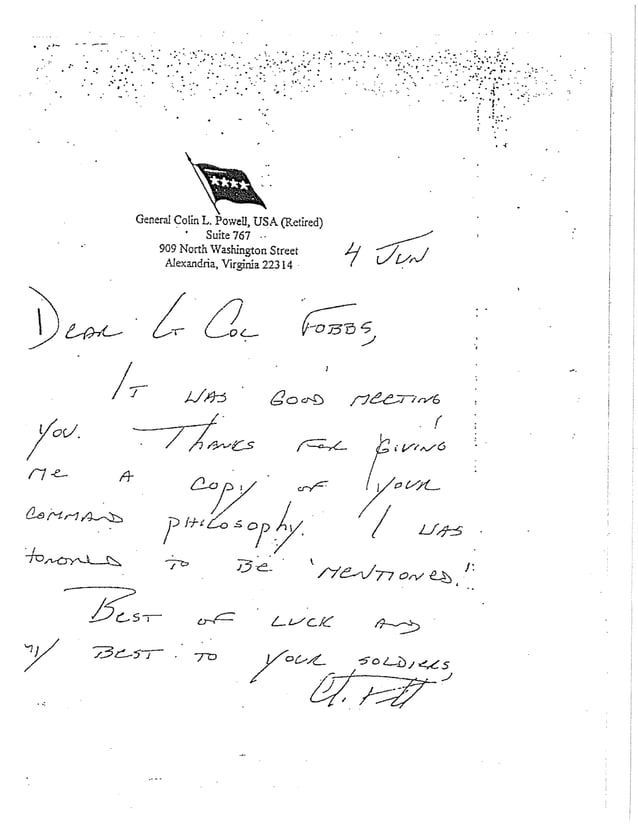 General Colin L. Powell, USA (Retired)
Suite 767
909 North Washington Street
Alexandria, Virginia 22314
4 Jun
Dear Lt Col Fobbs,
It was good meeting
you. Thanks for giving
me a copy of your
command philosophy. I was
honored to be "mentioned."
Best of luck and
my best to your soldiers,